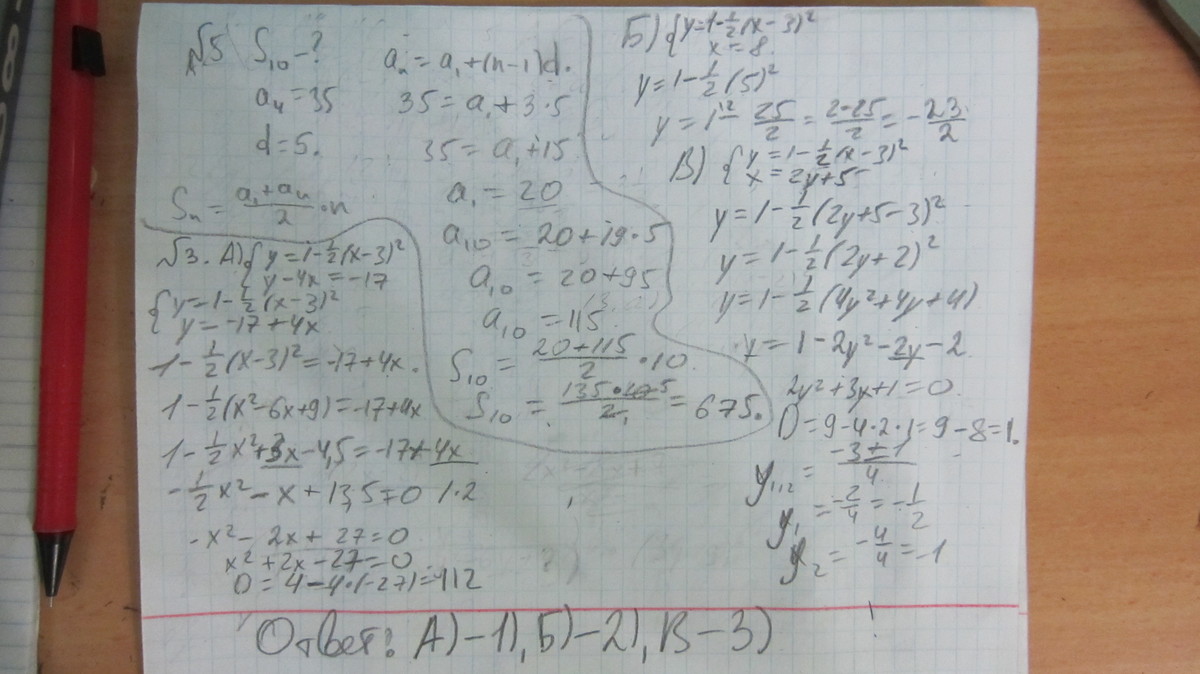 №5 S₁₀ - ?
a₄ = 35
d = 5.
Sₙ = (a₁ + aₙ)/2 · n
aₙ = a₁ + (n-1)d.
35 = a₁ + 3·5
35 = a₁ + 15
a₁ = 20
a₁₀ = 20 + 19·5
a₁₀ = 20 + 95
a₁₀ = 115
S₁₀ = (20 + 115)/2 · 10
S₁₀ = = 675.
№3. А) { y = 1 - 1/2 (x-3)²
y - 4x = -17
{ y = 1 - 1/2 (x-3)²
y = -17 + 4x
1 - 1/2 (x-3)² = -17 + 4x.
1 - 1/2 (x² - 6x + 9) = -17 + 4x
1 - 1/2 x² + 3x - 4,5 = -17 + 4x
-1/2 x² - x + 13,5 = 0 | · 2
-x² - 2x + 27 = 0
x² + 2x - 27 = 0
D = 4 - 4·(-27) = 112
Б) { y = 1 - 1/2 (x-3)²
x = 8.
y = 1 - 1/2 (5)²
y = 1 - 25/2 = (2-25)/2 = -23/2
В) { y = 1 - 1/2 (x-3)²
x = 2y + 5
y = 1 - 1/2 (2y + 5 - 3)²
y = 1 - 1/2 (2y + 2)²
y = 1 - 1/2 (4y² + 4y + 4)
y = 1 - 2y² - 2y - 2
2y² + 3x + 1 = 0
D = 9 - 4·2·1 = 9 - 8 = 1.
y₁,₂ = (-3 ± 1)/4
y₁ = -2/4 = -1/2
y₂ = -4/4 = -1
Ответ: А) - 1), Б) - 2), В - 3)